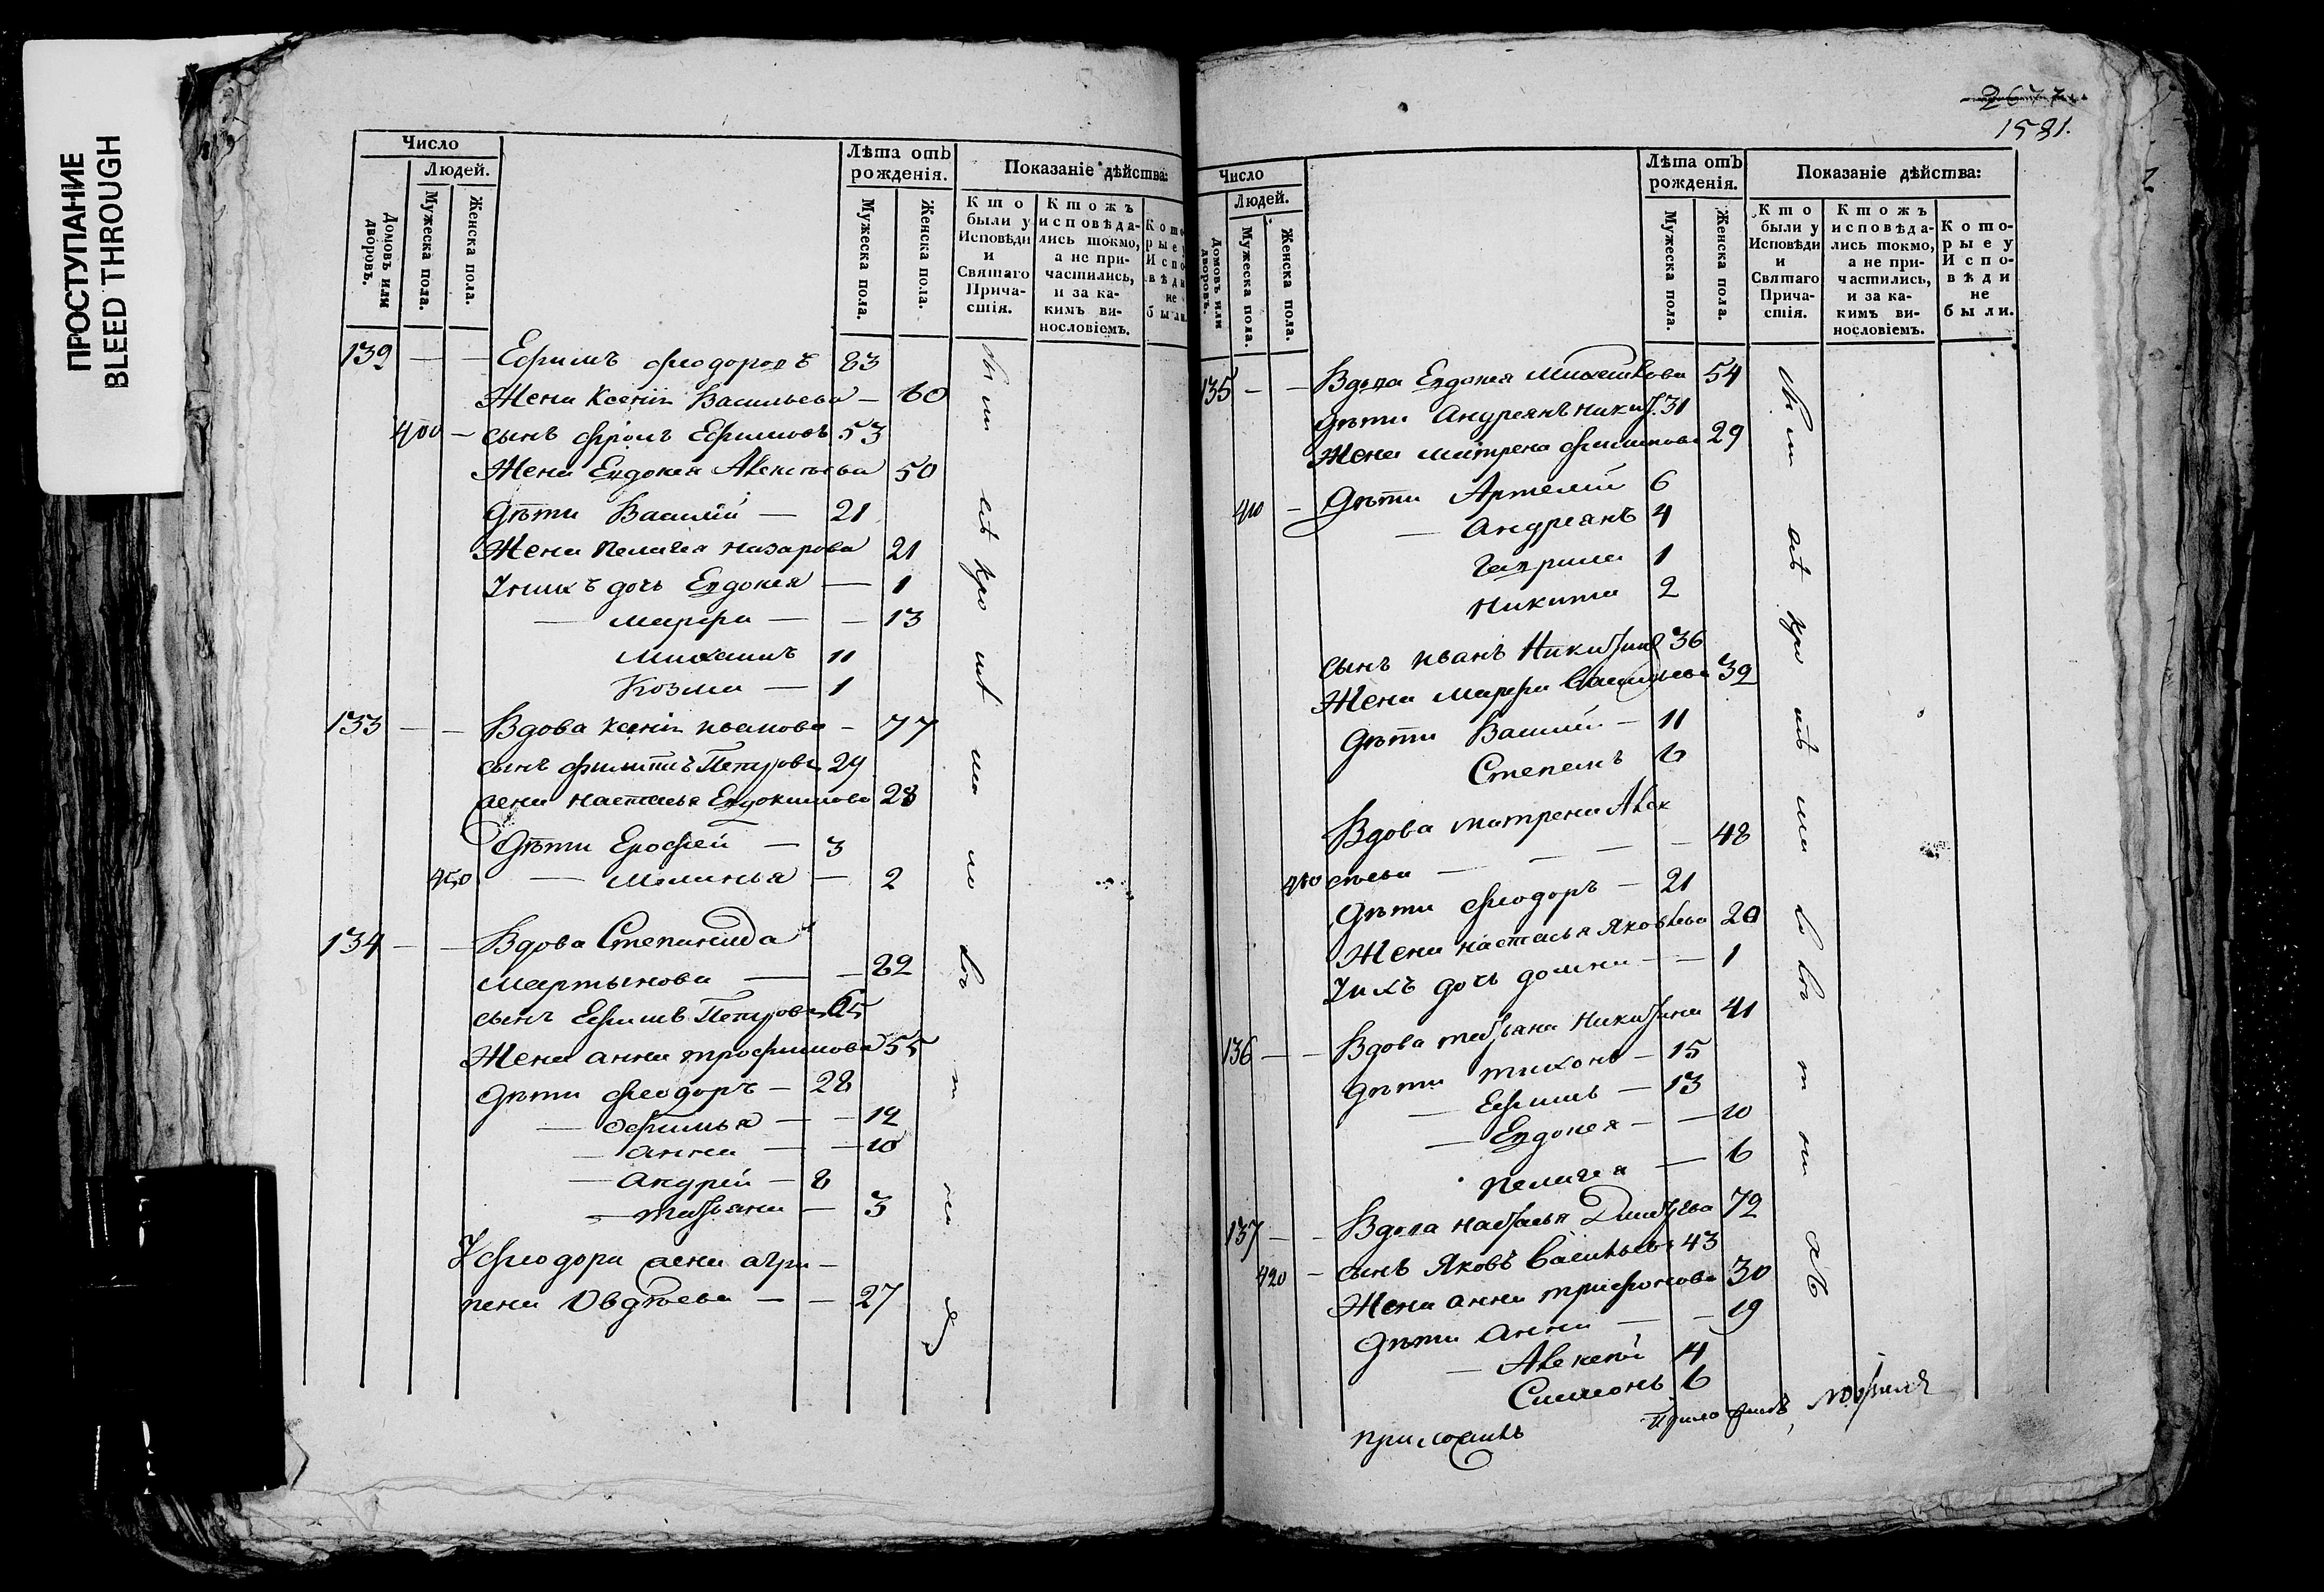 ПРОСТУПАНИЕ
BLEED THROUGH
Число
Людей.
Домовъ или дворовъ.
Мужеска пола.
Женска пола.
Лѣта отъ рожденія.
Мужеска пола.
Женска пола.
Показаніе дѣйства:
Кто были у Исповѣди и Святаго Причастія.
Ктожъ исповѣдались токмо, а не причастились, и за какимъ винословіемъ.
Которые у Исповѣди не были.
139 — — Ефимъ Феодоровъ 83
Жена Ксенія Васильева — 60
400 — сынъ Фролъ Ефимовъ 53
Жена Евдокея Алексѣева 50
Дѣти Василій — 21
Жена Пелагея Назарова 21
У нихъ дочь Евдокея — 1
— Марфа — — 13
Михаилъ 11
Козма — 1
133 — — Вдова Ксенія Иванова — 77
сынъ Филиппъ Петровъ 29
жена Настасья Евдокимова 28
Дѣти Ерофей — 3
450 — Маланья — 2
134 — — Вдова Степанида
Мартынова — — 82
сынъ Ефимъ Петровъ 65
Жена Анна Трофимова 55
Дѣти Феодоръ — 28
— Офимья — — 12
— Анна — — 10
— Андрей — 8
— Татьяна — 3
У Феодора жена Агри-
пена Овдѣева — — 27
2677
1581.
Число
Людей.
Домовъ или дворовъ.
Мужеска пола.
Женска пола.
Лѣта отъ рожденія.
Мужеска пола.
Женска пола.
Показаніе дѣйства:
Кто были у Исповѣди и Святаго Причастія.
Ктожъ исповѣдались токмо, а не причастились, и за какимъ винословіемъ.
Которые у Исповѣди не были.
135 — — Вдова Евдокея Михайлова 54
Дѣти Андреянъ Никит. 31
Жена Матрена Филипова 29
410 — Дѣти Артемій 6
— Андреянъ 4
Гаврила 1
Никита 2
сынъ Иванъ Никитинъ 36
Жена Марфа Васильева 39
Дѣти Василій — 11
Степанъ 6
Вдова Матрена Алек
460 сѣева — — — — 48
Дѣти Феодоръ — 21
Жена Настасья Яковлева 20
У нихъ дочь Домна — — 1
136 — — Вдова Татьяна Никитина 41
Дѣти Тихонъ — 15
— Ефимъ — 13
— Евдокея — — 10
Пелагея — 6
137 — — Вдова Настасья Дмитрева 72
420 — сынъ Яковъ Васильевъ 43
Жена Анна Трифонова 30
Дѣти Анна — — 19
— Алексѣй 14
Симионъ 6